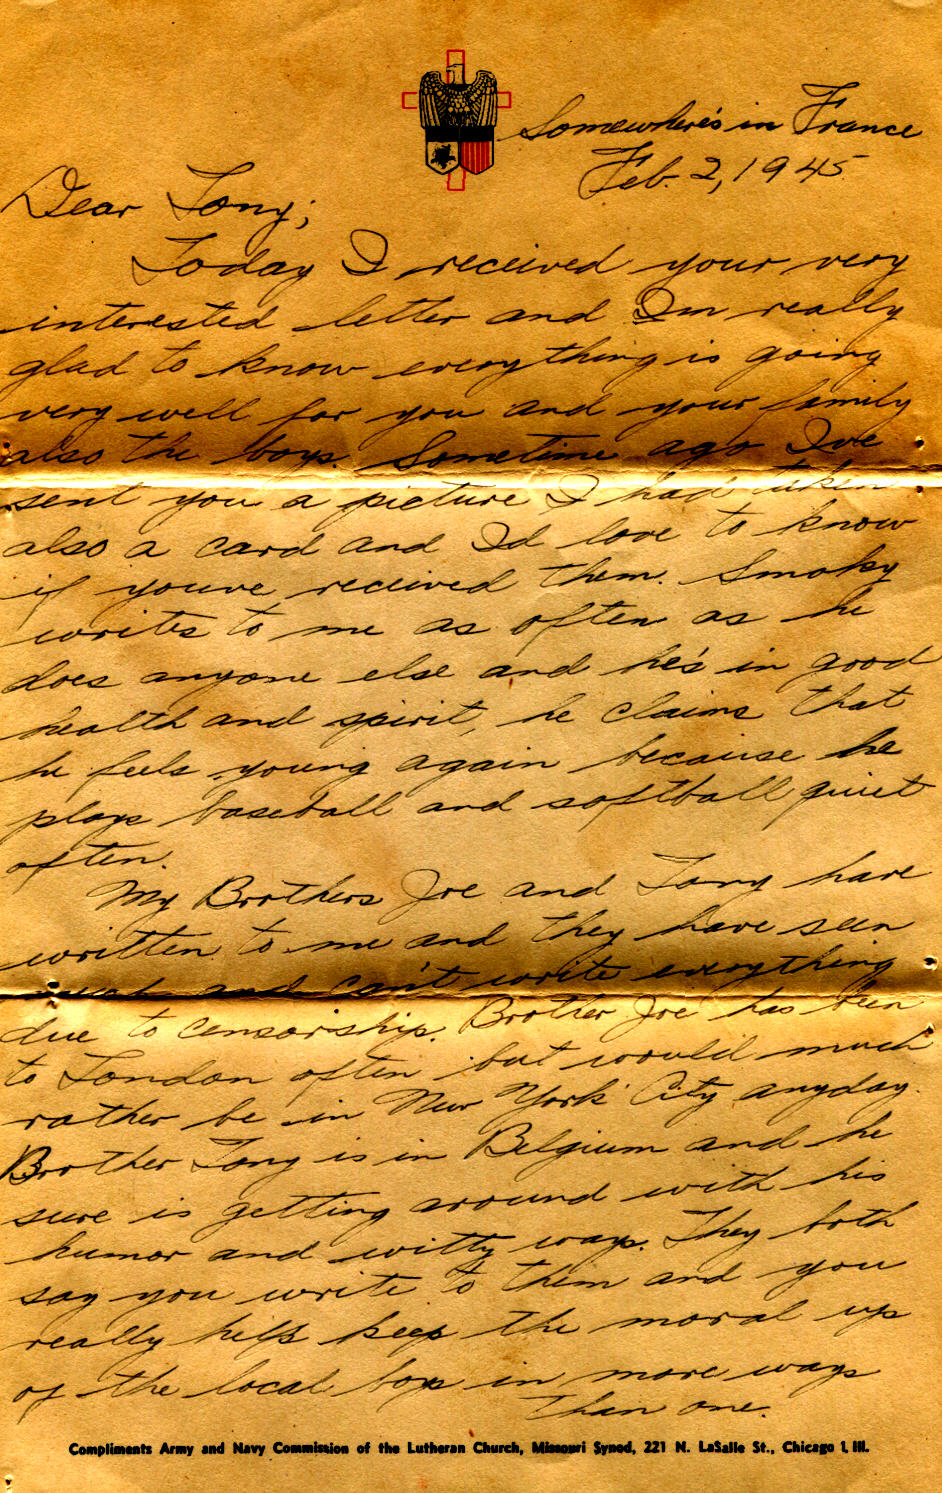 Somewhere's in France
Feb. 2, 1945
Dear Tony;
Today I received your very
interested letter and Im really
glad to know everything is going
very well for you and your family
also the boys. Sometime ago Ive
sent you a picture I had taken
also a card and Id love to know
if youve recieved them. Smoky
writes to me as often as he
does anyone else and he's in good
health and spirit, he claims that
he feels young again because he
plays baseball and softball quiet
often.
My Brothers Joe and Tony have
written to me and they have seen
much and can't write everything
due to censorship. Brother Joe has been
to London often but would much
rather be in New York City anyday.
Brother Tony is in Belgium and he
sure is getting around with his
humor and witty ways. They both
say you write to them and you
really help keep the moral up
of the local boys in more ways
than one.
Compliments Army and Navy Commission of the Lutheran Church, Missouri Synod, 221 N. LaSalle St., Chicago 1, Ill.